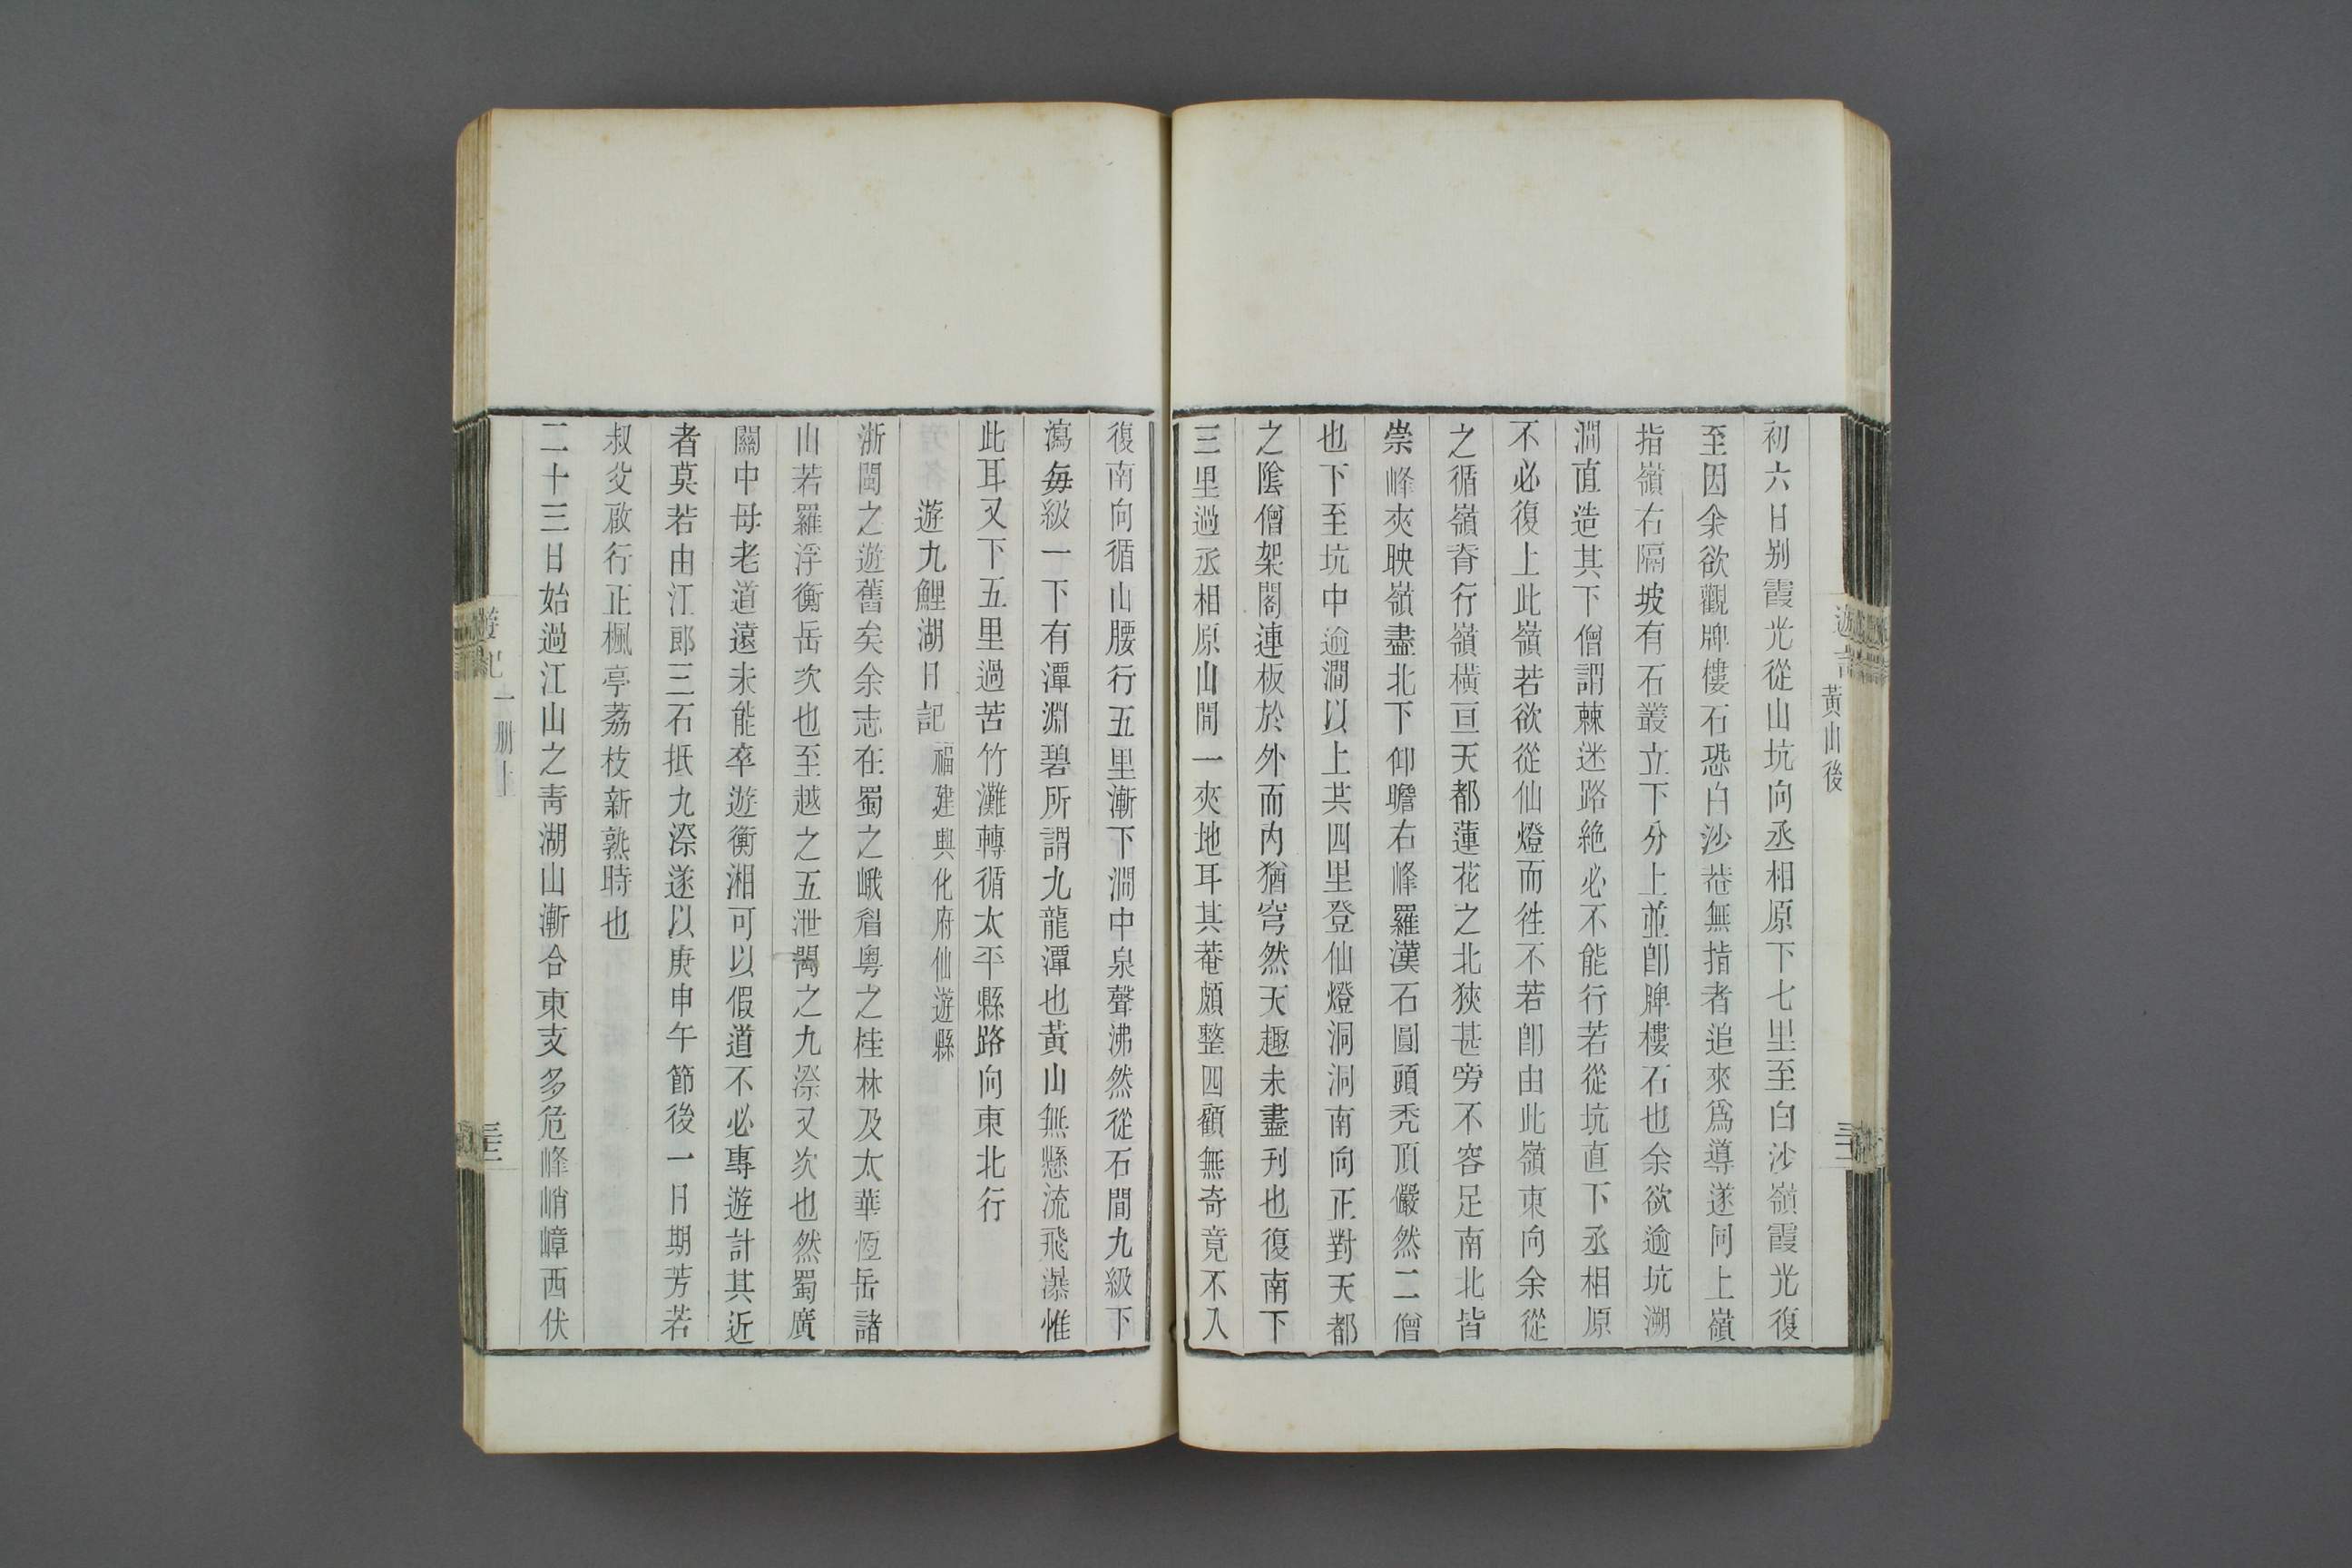 遊記
黃山後
三十二
初六日别霞光從山坑向丞相原下七里至白沙嶺霞光復
至因余欲觀牌樓石恐白沙菴無指者追來爲導遂同上嶺
指嶺右隔坡有石叢立下分上並卽牌樓石也余欲逾坑溯
澗直造其下僧謂棘迷路絶必不能行若從坑直下丞相原
不必復上此嶺若欲從仙燈而徃不若卽由此嶺東向余從
之循嶺脊行嶺橫亘天都蓮花之北狹甚旁不容足南北皆
崇峰夾映嶺盡北下仰瞻右峰羅漢石圓頭秃頂儼然二僧
也下至坑中逾澗以上共四里登仙燈洞洞南向正對天都
之陰僧架閣連板於外而内猶穹然天趣未盡刊也復南下
三里過丞相原山間一夾地耳其菴頗整四顧無奇竟不入
復南向循山腰行五里漸下澗中泉聲沸然從石間九級下
瀉每級一下有潭淵碧所謂九龍潭也黃山無懸流飛瀑惟
此耳又下五里過苦竹灘轉循太平縣路向東北行
遊九鯉湖日記福建興化府仙遊縣
浙閩之遊舊矣余志在蜀之峨眉粤之桂林及太華恆岳諸
山若羅浮衡岳次也至越之五泄閩之九漈又次也然蜀廣
關中母老道遠未能卒遊衡湘可以假道不必專遊計其近
者莫若由江郎三石抵九漈遂以庚申午節後一日期芳若
叔父啟行正楓亭荔枝新熟時也
二十三日始過江山之青湖山漸合東支多危峰峭嶂西伏
遊記
一册上